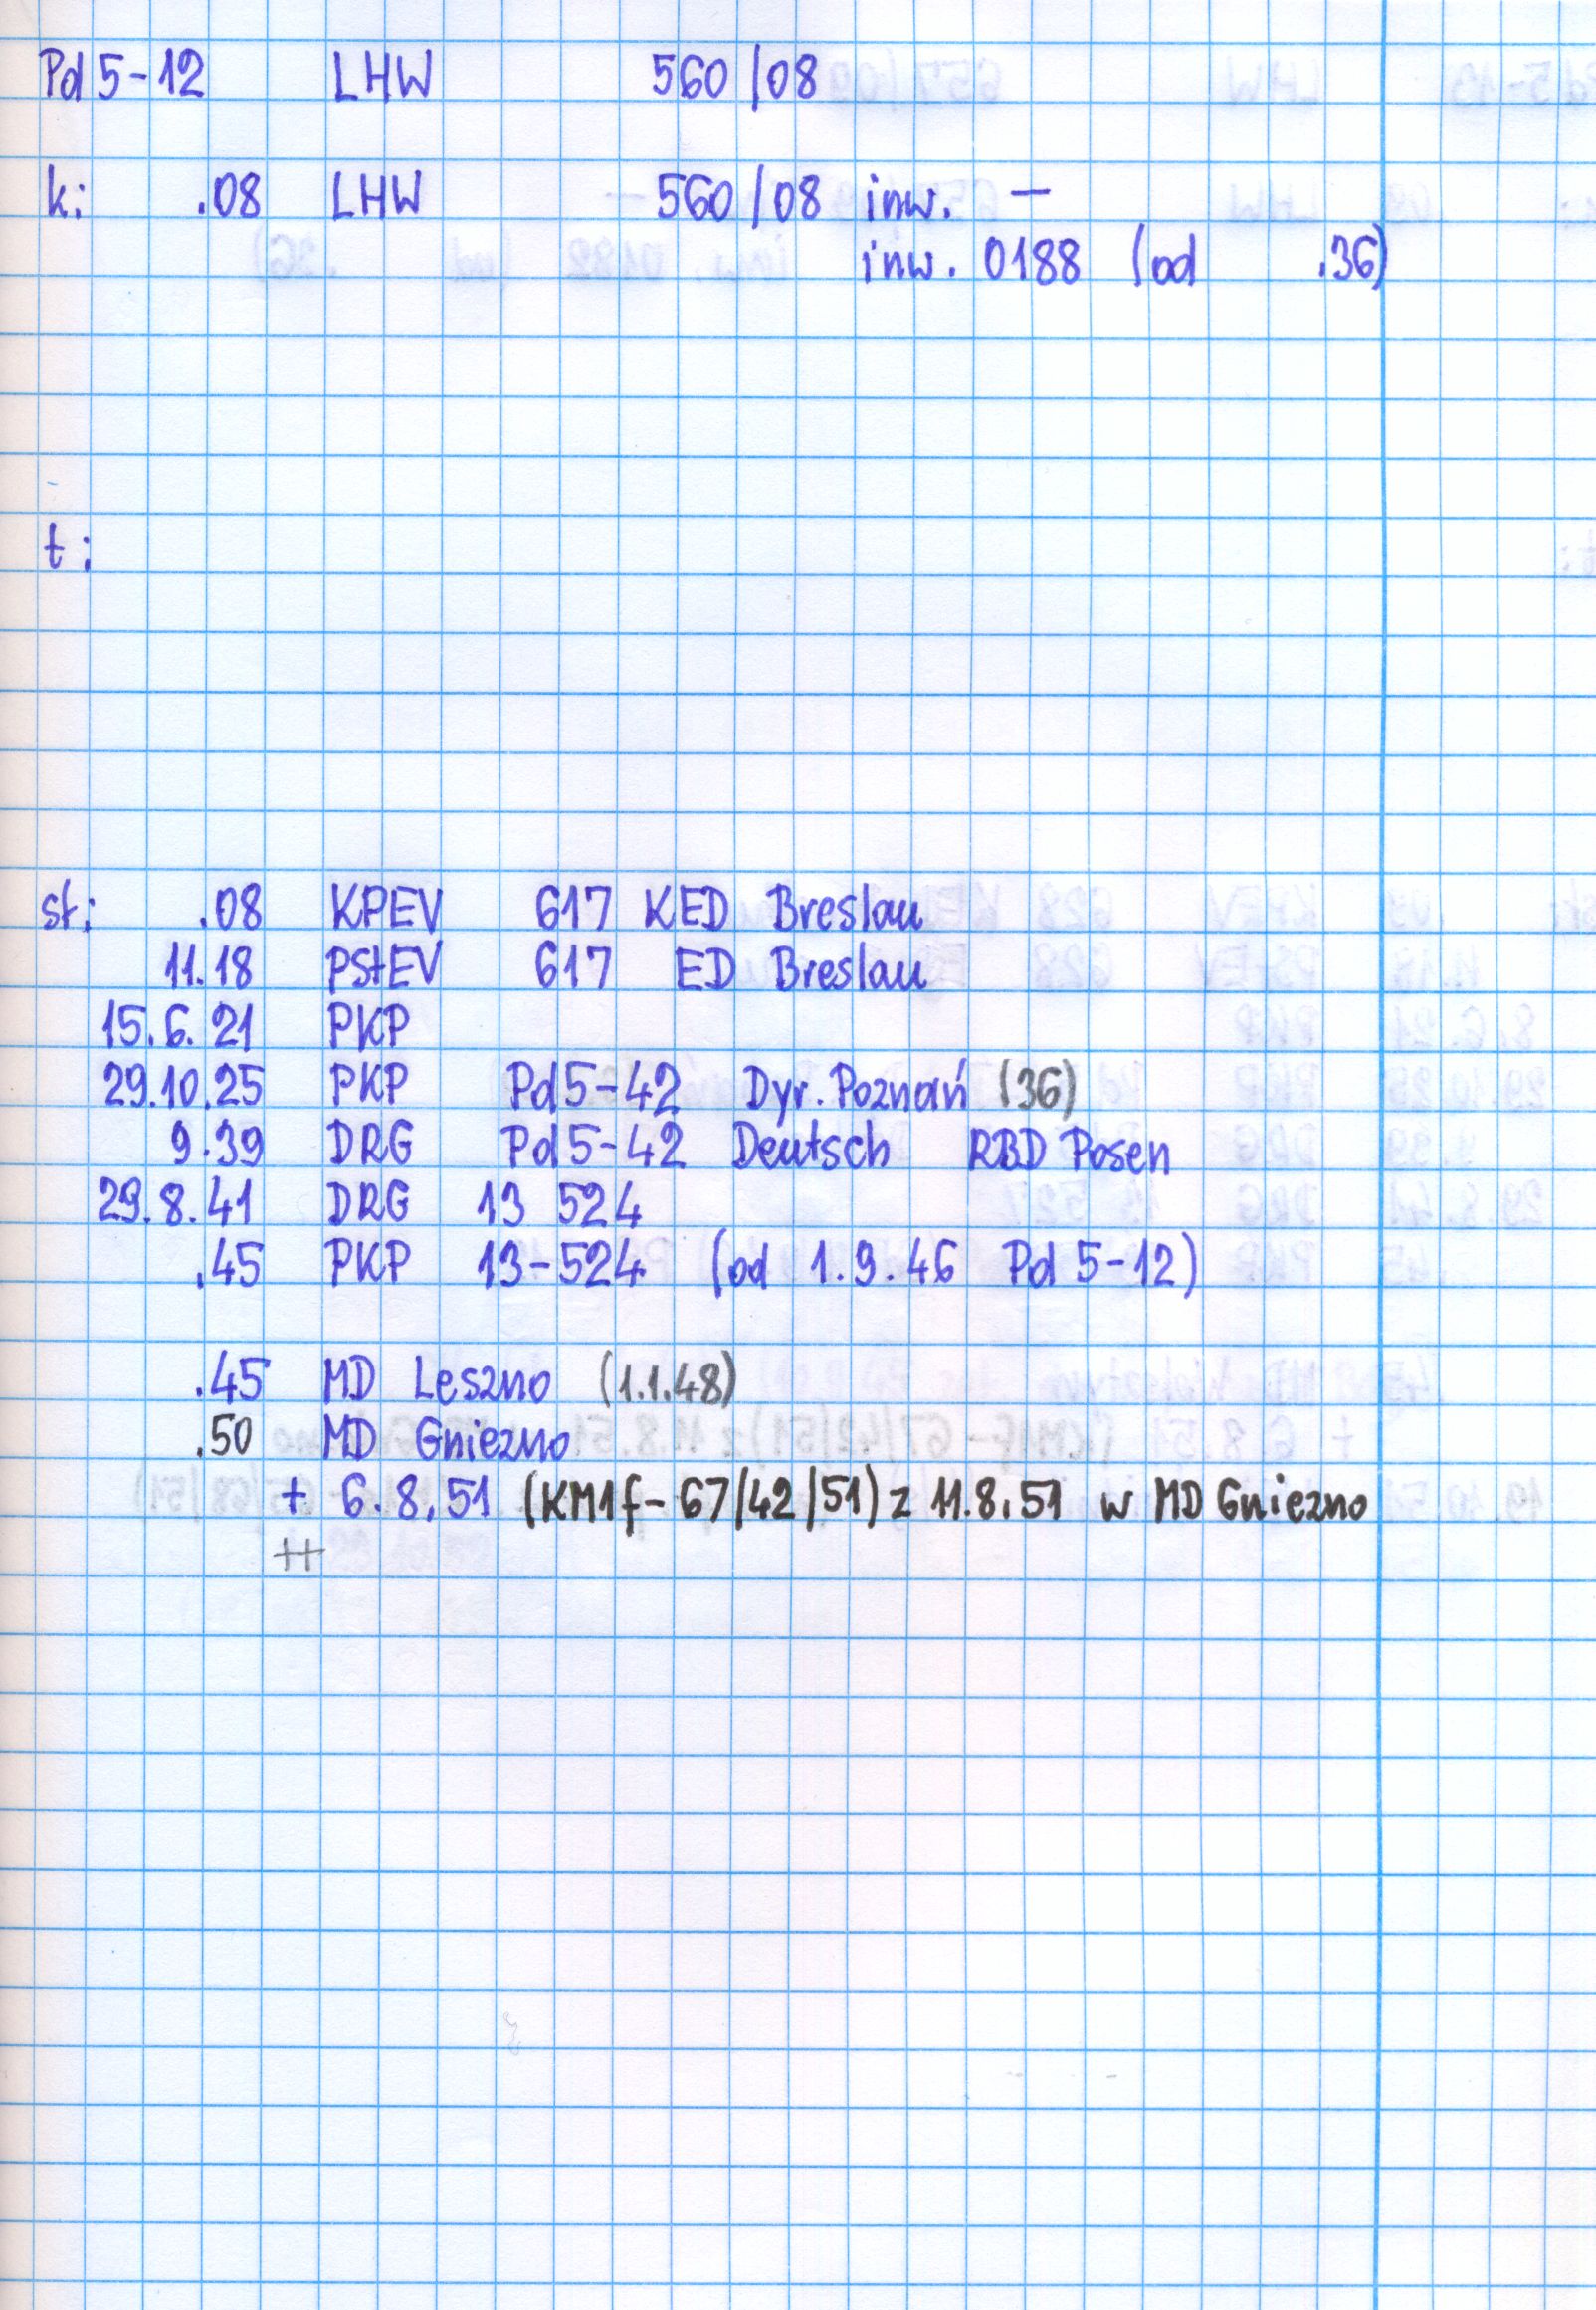 Pd 5-12 LHW 560/08
k: .08 LHW 560/08 inw. —
inw. 0188 (od .36)
t:
st: .08 KPEV 617 KED Breslau
11.18 PStEV 617 ED Breslau
15.6.21 PKP
29.10.25 PKP Pd5-42 Dyr. Poznań (36)
9.39 DRG Pd5-42 Deutsch RBD Posen
29.8.41 DRG 13 524
.45 PKP 13-524 (od 1.9.46 Pd 5-12)
.45 MD Leszno (1.1.48)
.50 MD Gniezno
+ 6.8.51 (KM1f-67/42/51) z 11.8.51 w MD Gniezno
++